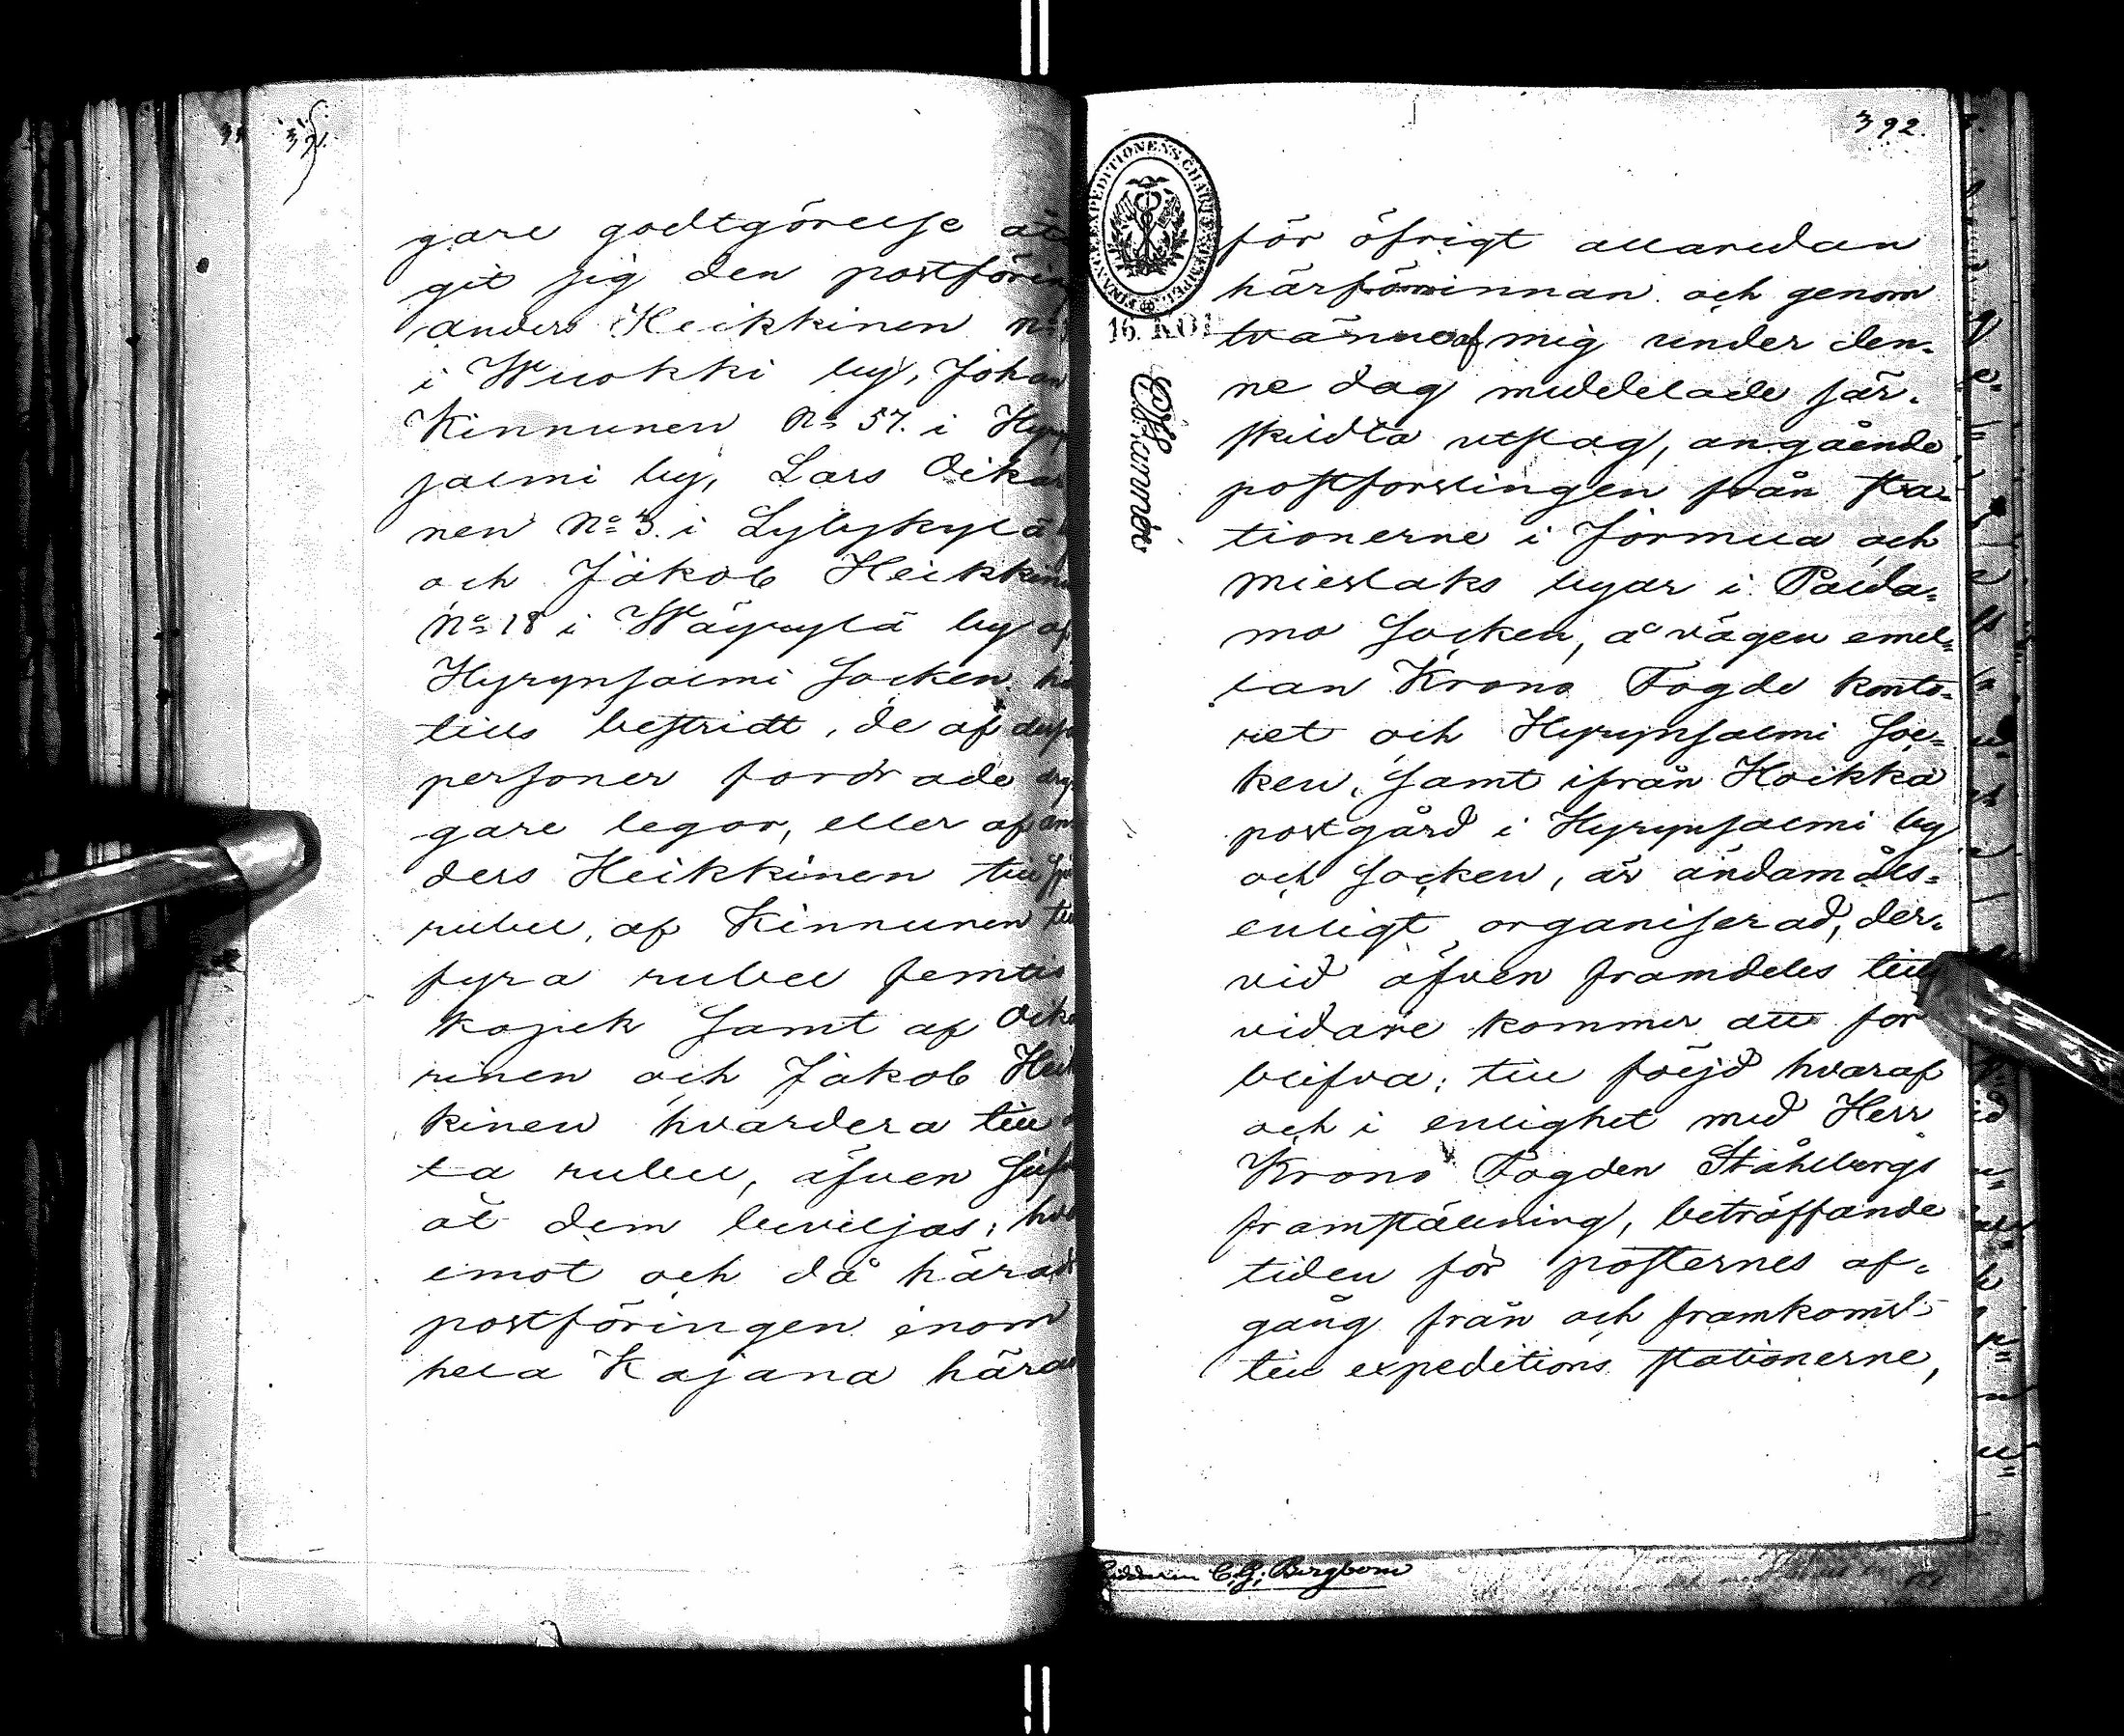 391.
gare godtgörelse åta
git sig den postföring
Anders Heikkinen No
i Wuokki by, Johan
Kinnunen No 57. i Hyryn
salmi by, Lars Oikar
nen No 3. i Lylykylä
och Jakob Heikkine
No 18 i Wäyrylä by af
Hyrynsalmi Socken hi
tills bestridt, de af desse
personer fordrade dry
gare legor, eller af An
ders Heikkinen till Sju
rubel, af Kinnunen till
fyra rubel femtio
kopek Samt af Oika
rinen och Jakob Heik
kinen hvardera till
ta rubel, äfven
åt dem beviljas; hvar
emot och då härads
postföringen inom
hela Kajana härad
392.
FINANS EXPEDITIONENS CHARTÆ STEMPEL
16. KOP
för öfrigt allaredan
härförinnan och genom
tvänne af mig under den-
ne dag meddelade sär-
skildta utslag, angående
postforslingen från sta-
tionerne i Jormua och
Mieslaks byar i Palda-
mo Socken, å vägen emel-
lan Krono Fogde konto-
ret och Hyrynsalmi Soc-
ken, Samt ifrån Hoikka
postgård i Hyrynsalmi by
och Socken, är ändamåls-
enligt organiserad, der-
vid äfven framdeles till
vidare kommer att för
blifva; till följd hvaraf
och i enlighet med Herr
Krono Fogden Ståhlbergs
framställning, beträffande
tiden för posternes af-
gång från och framkomst
till expeditions stationerne,
C. G. Bergbom